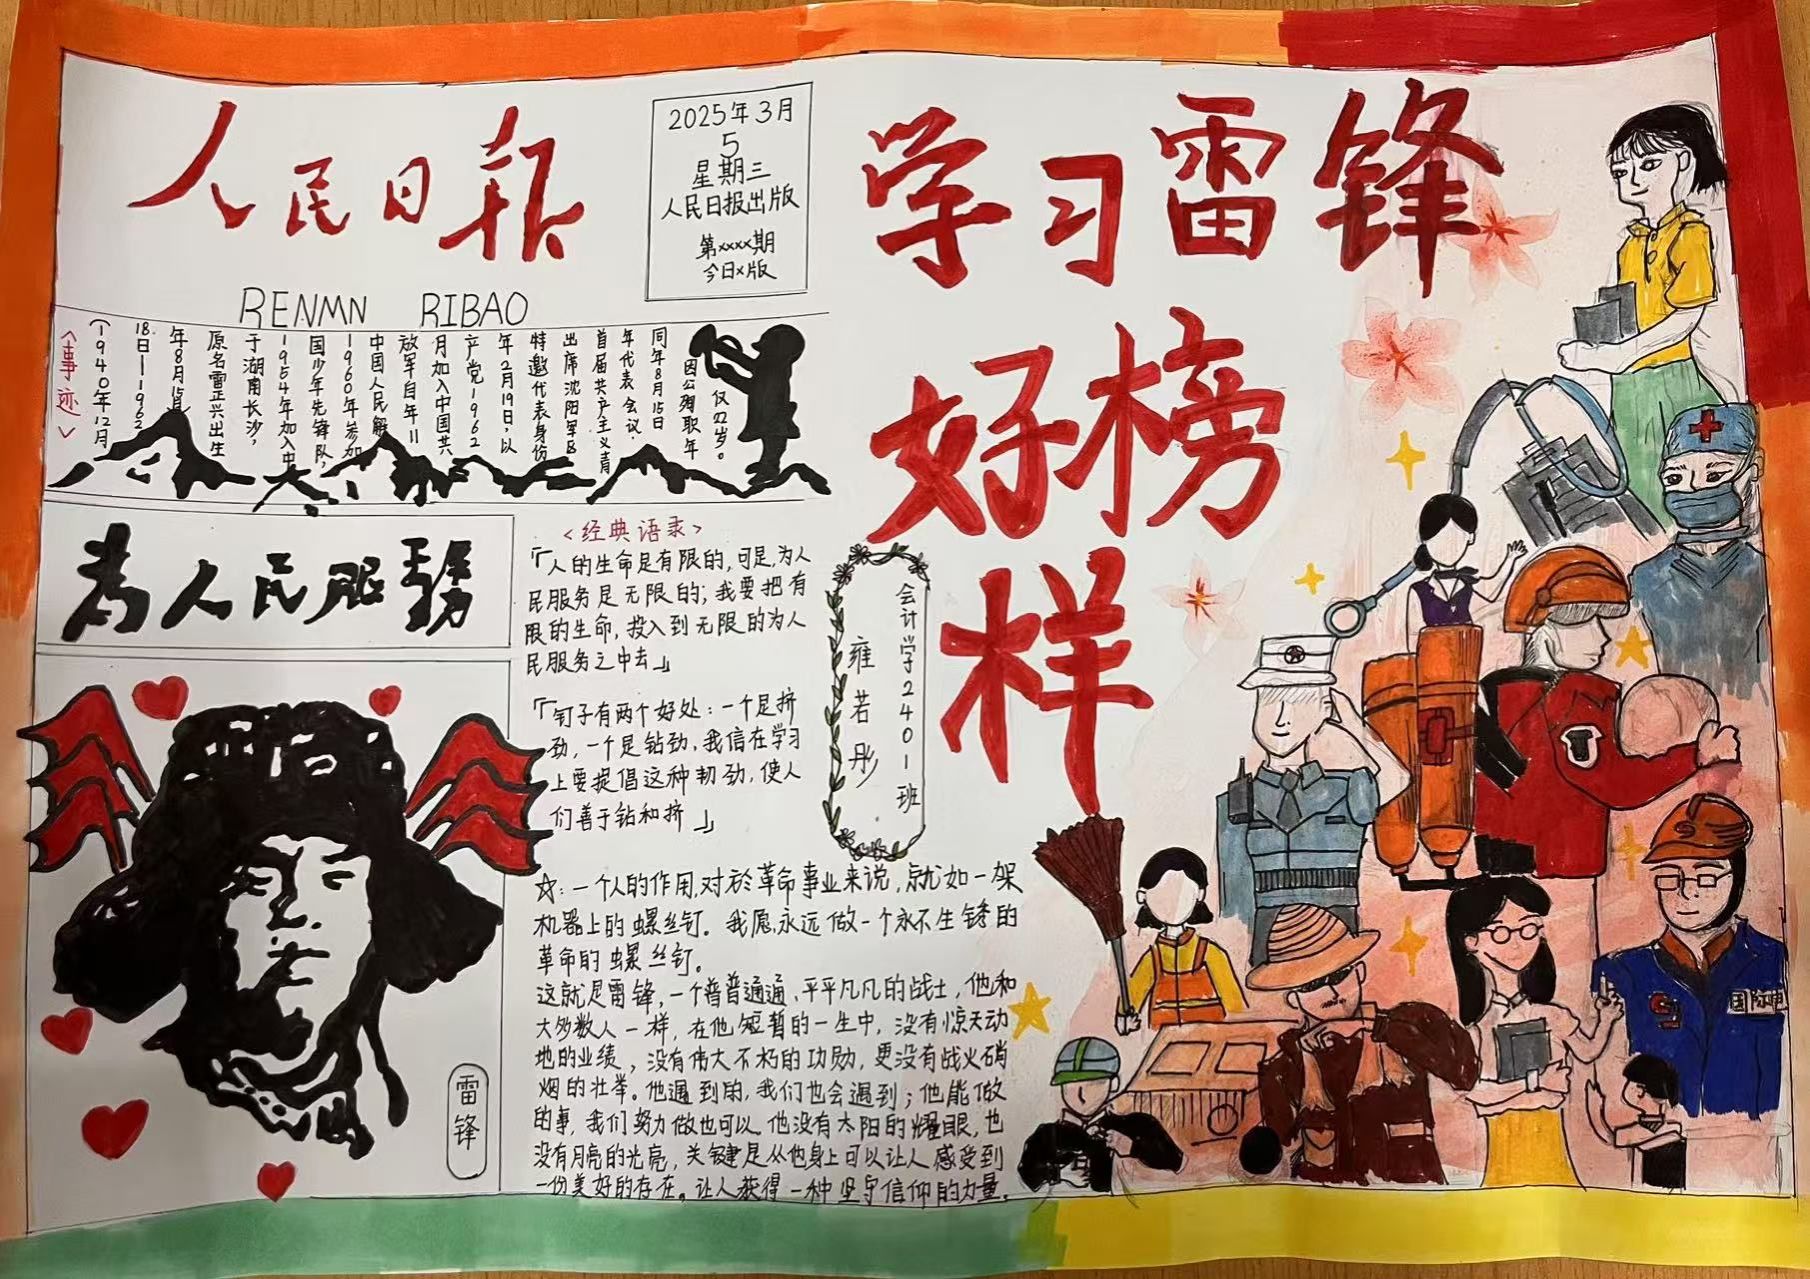 人民日报
RENMN RIBAO
2025年3月
5
星期三
人民日报出版
第xxxx期
今日x版
学习雷锋
好榜
样
<事迹>
(1940年12月
18日—1962
年8月15日
原名雷正兴出生
于湖南长沙,
1954年加入中
国少年先锋队,
1960年参加
中国人民解
放军自年11
月加入中国共
产党1962
年2月19日,以
特邀代表身份
出席沈阳军区
首届共产主义青
年代表会议.
同年8月15日
因公殉职年
仅22岁。
为人民服務
<经典语录>
「人的生命是有限的,可是,为人
民服务是无限的;我要把有
限的生命,投入到无限的为人
民服务之中去」
「钉子有两个好处:一个是挤
劲,一个是钻劲,我信在学习
上要提倡这种韧劲,使人
们善于钻和挤」
会计学2401班
雍若彤
☆:一个人的作用,对於革命事业来说,就如一架
机器上的螺丝钉。我愿永远做一个永不生锈的
革命的螺丝钉。
这就是雷锋,一个普普通通、平平凡凡的战士,他和
大多数人一样,在他短暂的一生中,没有惊天动
地的业绩,没有伟大不朽的功勋,更没有战火硝
烟的壮举。他遇到的,我们也会遇到;他能做
的事,我们努力做也可以.他没有太阳的耀眼,也
没有月亮的光亮,关键是从他身上可以让人感受到
一份美好的存在。让人获得一种坚守信仰的力量.
雷锋